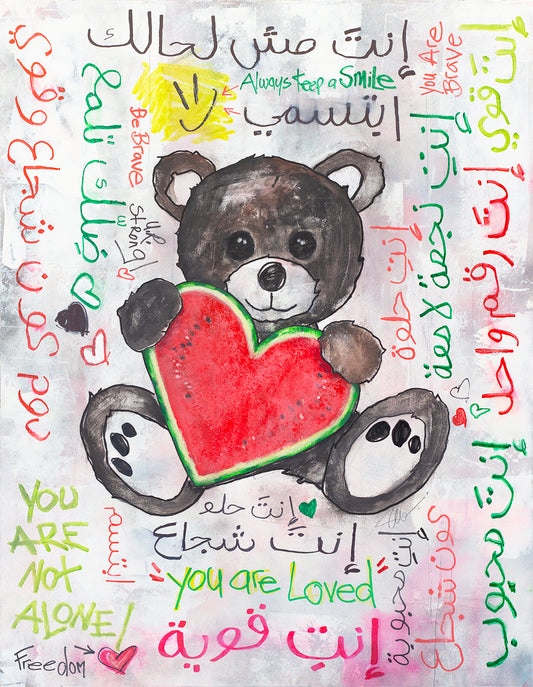 إنتَ مش لحالك
Always keep a Smile
ابتسمي
You Are
Brave
إنتَ قوي
دوم كون شجاع وقوي
ضلّك تلمع
Be Brave
Strong
إنتِ حلوة
إنتِ نجمة لامعة
إنتَ رقم واحد
إنتَ محبوب
كون شجاع
إنتِ محبوبة
إنتَ حلو
ابتسم
إنتَ شجاع
"You are Loved"
إنتِ قوية
YOU
ARE
NOT
ALONE!
Freedom